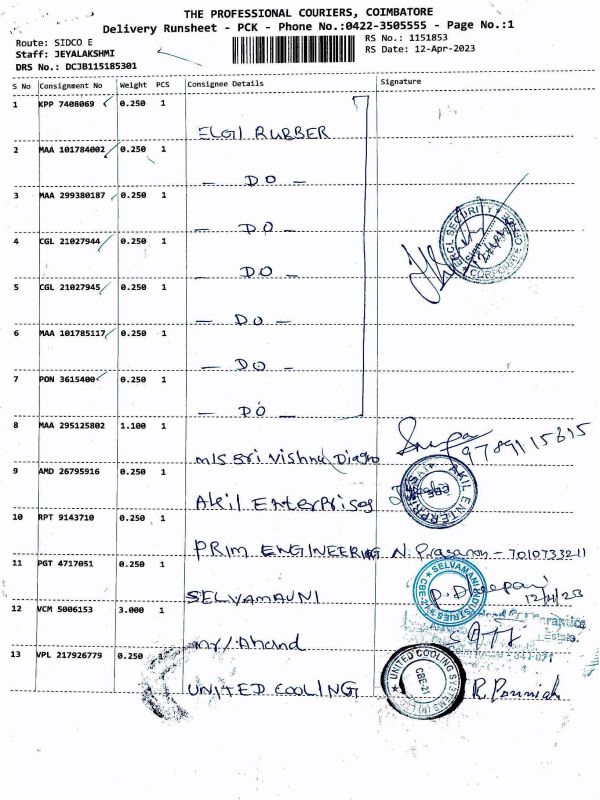 THE PROFESSIONAL COURIERS, COIMBATORE
Delivery Runsheet - PCK - Phone No.:0422-3505555 - Page No.:1
Route: SIDCO E
RS No.: 1151853
Staff: JEYALAKSHMI
RS Date: 12-Apr-2023
DRS No.: DCJB115185301
S No Consignment No Weight PCS Consignee Details Signature
1 KPP 7408069 0.250 1
ELGI RUBBER
2 MAA 101784002 0.250 1
— DO —
3 MAA 299380187 0.250 1
— DO —
4 CGL 21027944 0.250 1
— DO —
5 CGL 21027945 0.250 1
— DO —
6 MAA 101785117 0.250 1
— DO —
7 PON 3615400 0.250 1
— DO —
8 MAA 295125802 1.100 1
M/S Sri Vishnu 9789115615
9 AMD 26795916 0.250 1
Akil Enterprises AKIL ENTERPRISES
10 RPT 9143710 0.250 1
PRIM ENGINEERING N. Prasanan - 7010733211
11 PGT 4717051 0.250 1
SELVAMAUNI SELVAMANI INDUSTRIES CBE-21 12/4/23
12 VCM 5006153 3.000 1
Estate.
13 VPL 217926779 0.250
UNITED COOLING UNITED COOLING SYSTEMS CBE-21 R. Ponniah